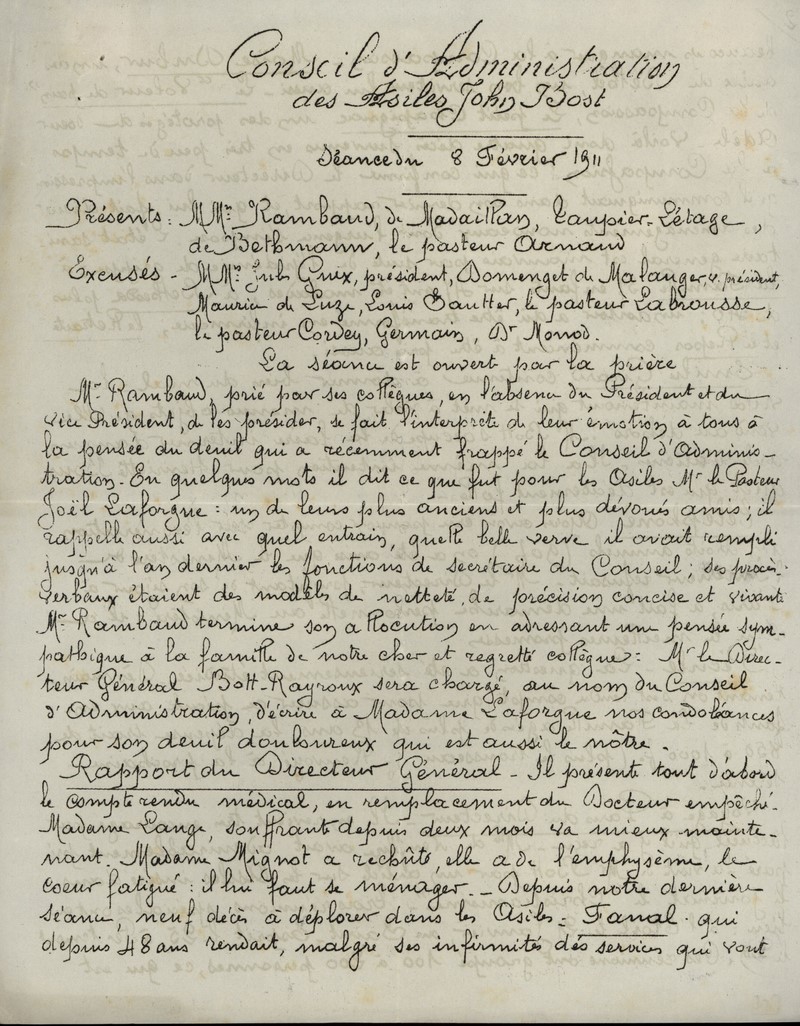 Conseil d'Administration
des Asiles John Bost
Séance du 8 Février 1911
Présents : MMrs Rambaud, de Madaillan, Laupier-Létage,
de Bethmann, le pasteur Arnaud
Excusés - MMrs Jules Grux, président, Domenget de Malauger, v. président,
Maurice de Luze, Louis Sautter, le pasteur Labrousse,
le pasteur Cordey, Germain, Dr Monod.
La séance est ouvert par la prière
Mr Rambaud, prié par ses collègues, en l'absence du Président et du
Vice Président, de les présider, se fait l'interprète de leur émotion à tous à
la pensée du deuil qui a récemment frappé le Conseil d'Adminis-
tration. En quelques mots il dit ce que fut pour les Asiles Mr le Pasteur
Joël Laforgue : un de leurs plus anciens et plus dévoués amis ; il
rappelle aussi avec quel entrain, quelle belle verve il avait rempli
jusqu'à l'an dernier les fonctions de secrétaire du Conseil ; ses procès-
verbaux étaient des modèles de netteté, de précision concise et vivante
Mr Rambaud termine son allocution en adressant une pensée sym-
pathique à la famille de notre cher et regretté collègue : Mr le Direc-
teur Général Bott-Rayroux sera chargé, au nom du Conseil
d'Administration, d'écrire à Madame Laforgue nos condoléances
pour son deuil douloureux qui est aussi le nôtre.
Rapport du Directeur Général - Il présente tout d'abord
le compte rendu médical, en remplacement du Docteur empêché.
Madame Lange, souffrante depuis deux mois va mieux mainte-
nant. Madame Mignot a rechûté, elle a de l'emphysème, le
coeur fatigué : il lui faut se ménager. - Depuis notre dernière
séance, neuf décès à déplorer dans les Asiles - Fanal. qui
depuis 48 ans rendait, malgré ses infirmités des services qui vont